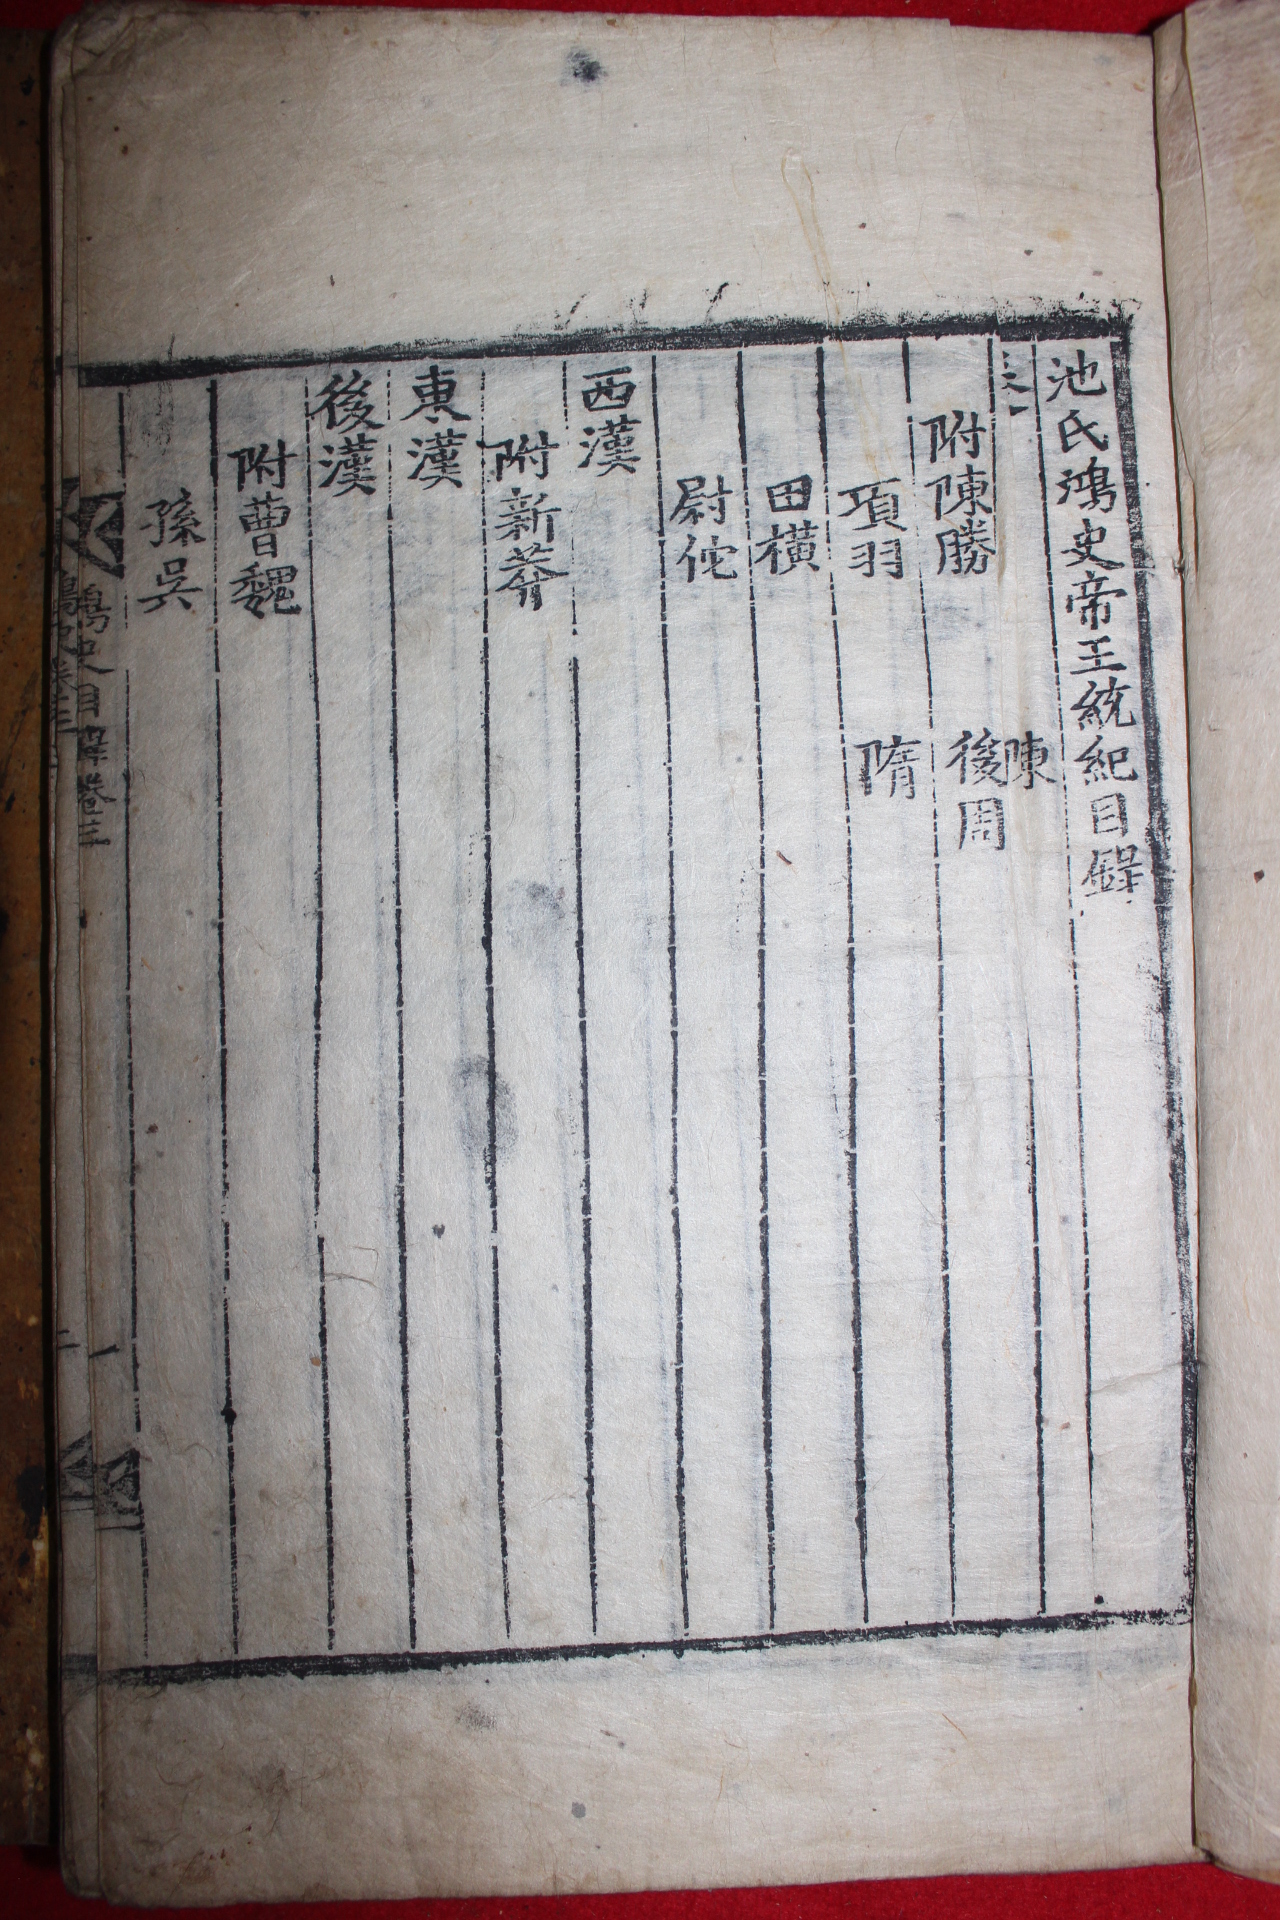 池氏鴻史帝王統紀目錄
陳
附陳勝 後周
項羽 隋
田橫
尉佗
西漢
附新莽
東漢
後漢
附曹魏
孫吳
鴻史目錄卷三 一